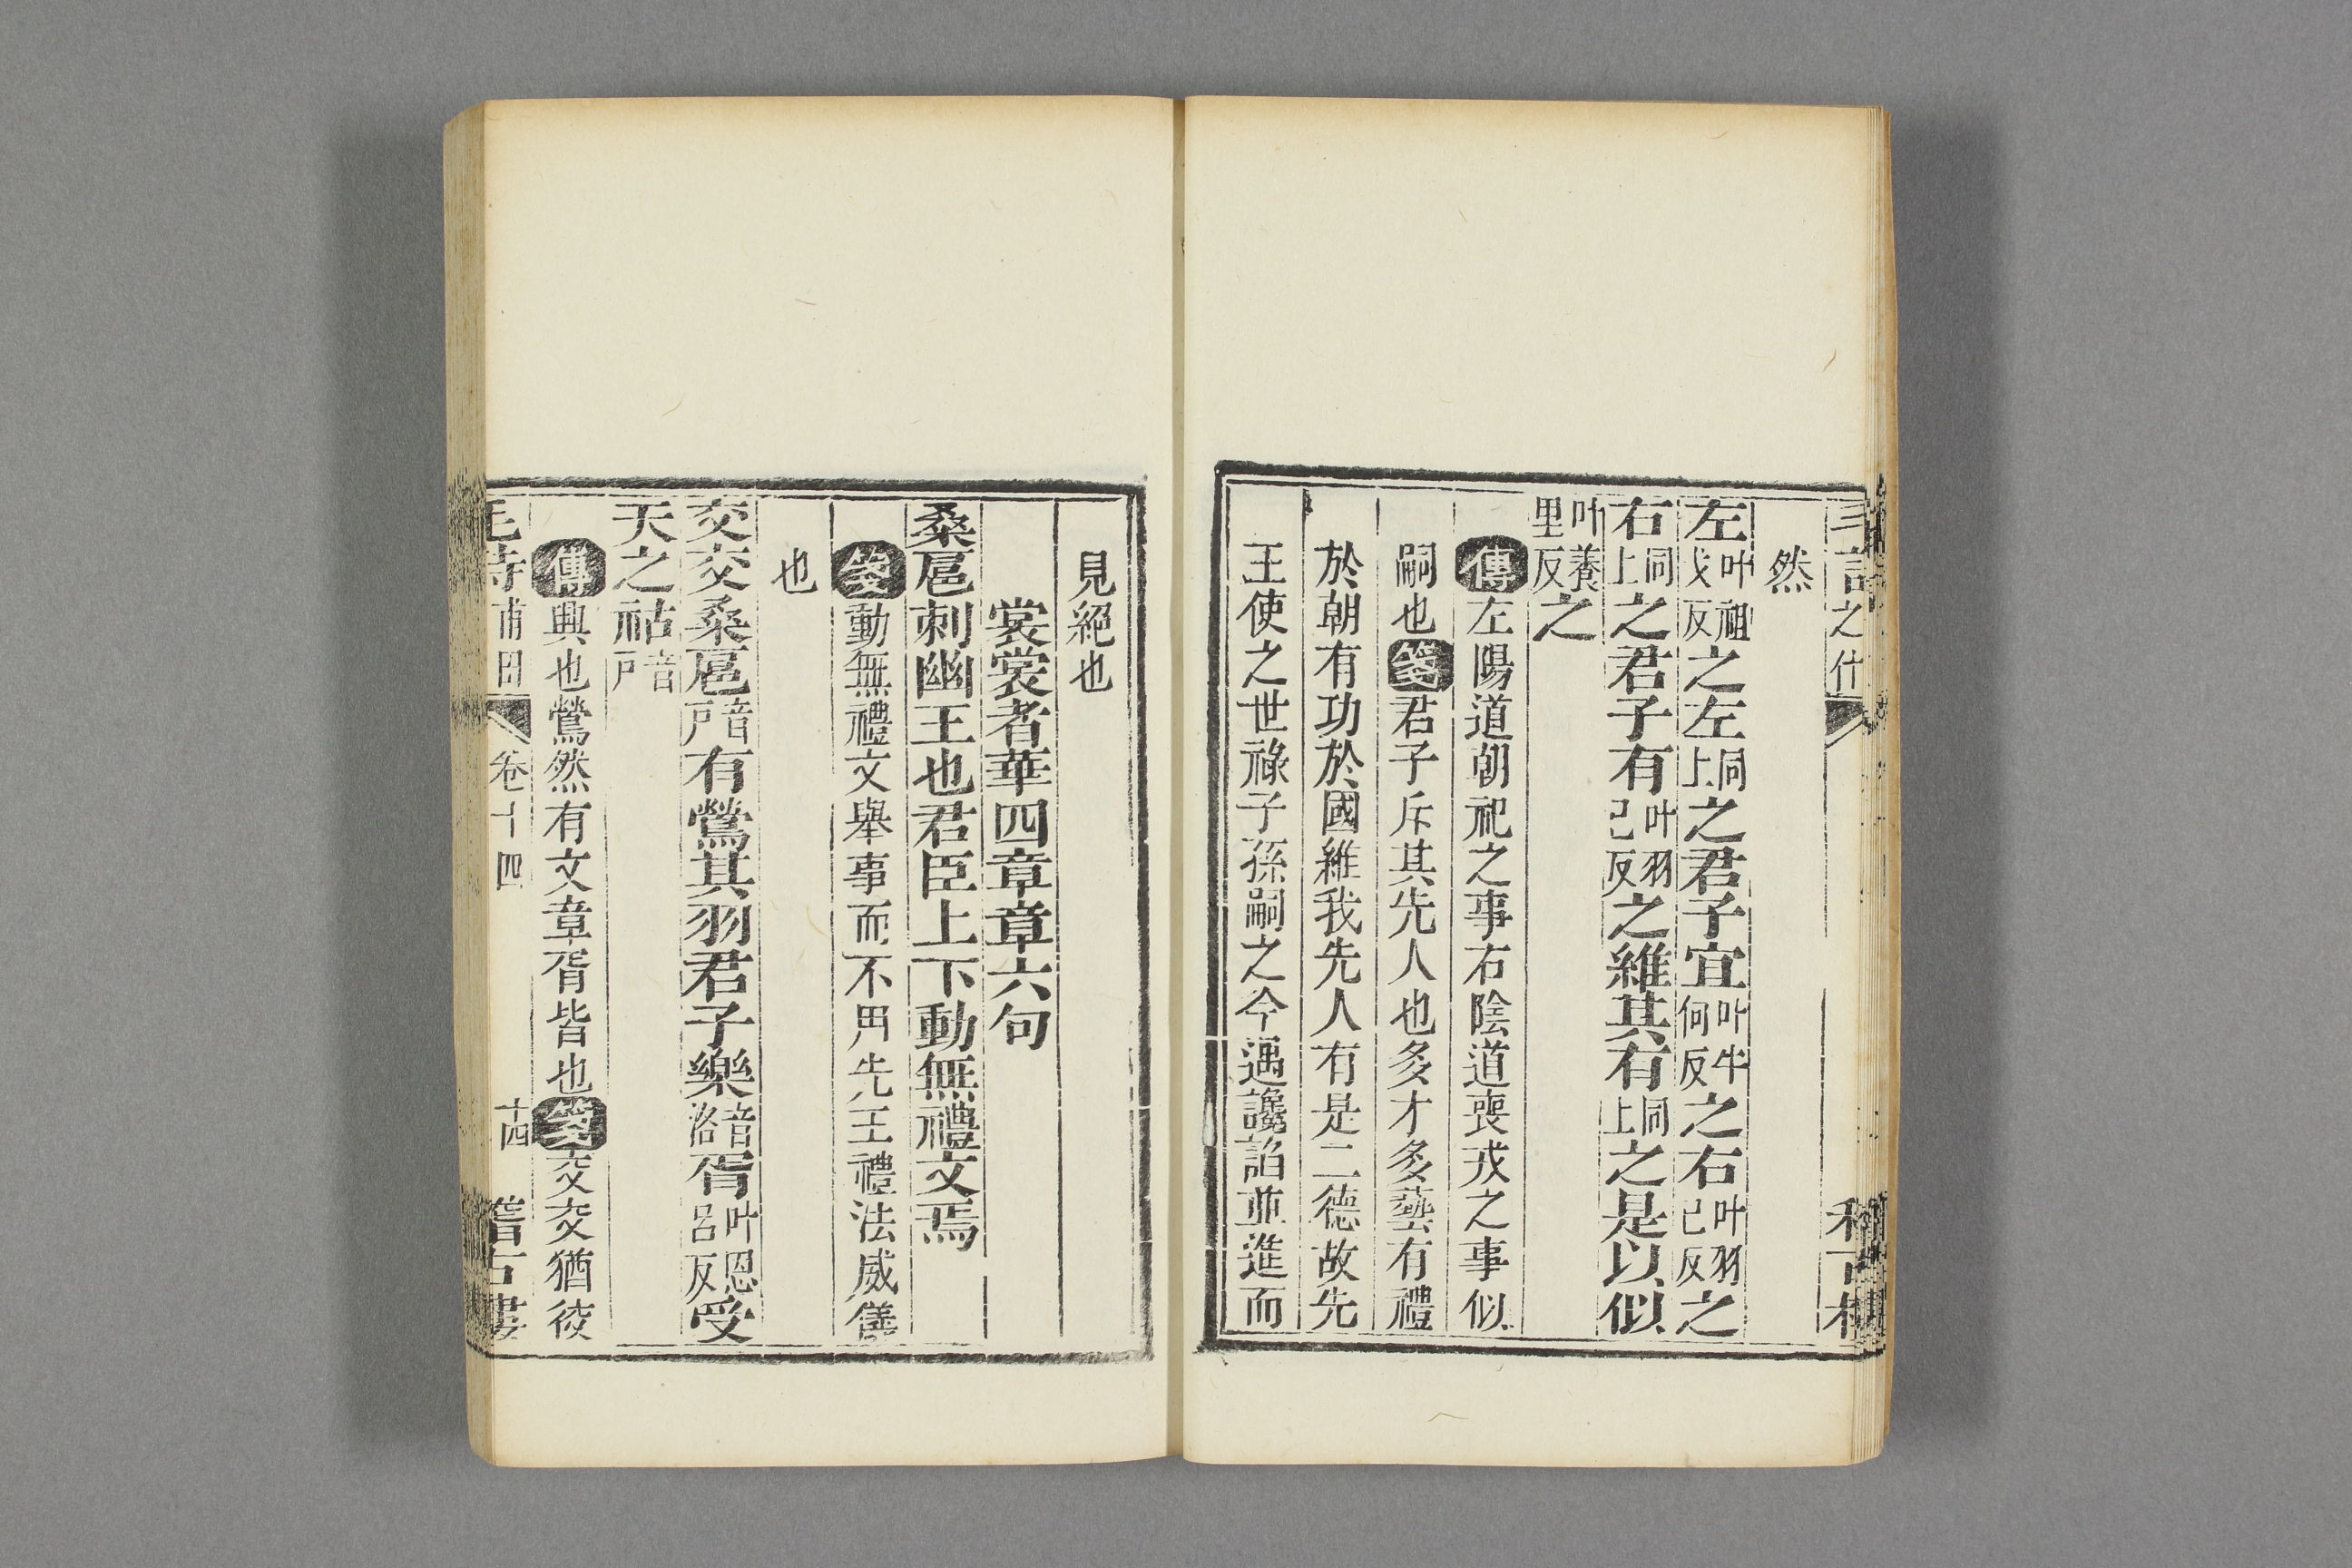 之什
然
左叶祖戈反之左同上之君子宜叶牛何反之右叶羽已反之
右同上之君子有叶羽已反之維其有同上之是以似
叶養里反之
傳左陽道朝祀之事右陰道喪戎之事似
嗣也箋君子斥其先人也多才多藝有禮
於朝有功於國維我先人有是二德故先
王使之世祿子孫嗣之今遇讒諂並進而
見絕也
裳裳者華四章章六句
桑扈刺幽王也君臣上下動無禮文焉
箋動無禮文舉事而不用先王禮法威儀
也
交交桑扈音戸有鶯其羽君子樂音洛胥叶恩呂反受
天之祜音戸
傳興也鶯然有文章胥皆也箋交交猶佼
毛詩甫田 卷十四 十四 稽古婁